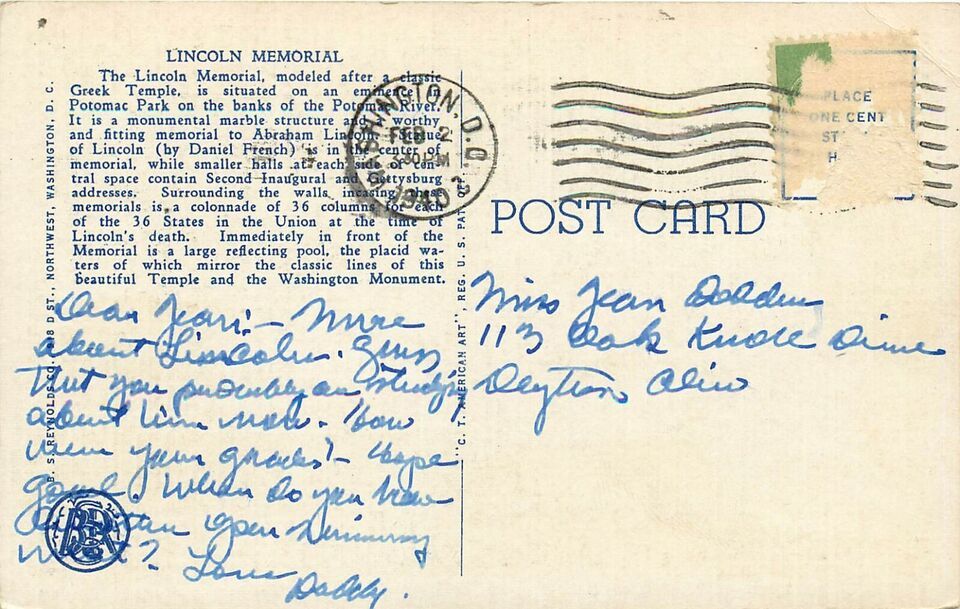 LINCOLN MEMORIAL
The Lincoln Memorial, modeled after a classic
Greek Temple, is situated on an eminence in
Potomac Park on the banks of the Potomac River.
It is a monumental marble structure and a worthy
and fitting memorial to Abraham Lincoln. Statue
of Lincoln (by Daniel French) is in the center of
memorial, while smaller halls at each side of cen-
tral space contain Second Inaugural and Gettysburg
addresses. Surrounding the walls incasing these
memorials is a colonnade of 36 columns for each
of the 36 States in the Union at the time of
Lincoln's death. Immediately in front of the
Memorial is a large reflecting pool, the placid wa-
ters of which mirror the classic lines of this
beautiful Temple and the Washington Monument.
B. S. REYNOLDS CO. D ST., NORTHWEST, WASHINGTON, D. C.
WASHINGTON, D.C.
FEB 2
PM
1940
PLACE
ONE CENT
ST
H
POST CARD
"C. T. AMERICAN ART", REG. U. S. PAT.
Dear Jean:- More
about Lincoln. Guess
that you probably are studying
about him now. How
were your grades?- Hope
good. When do you have
open swimming
meet? Love
Daddy.
Miss Jean
113 Oak Knoll Drive
Dayton Ohio
BR